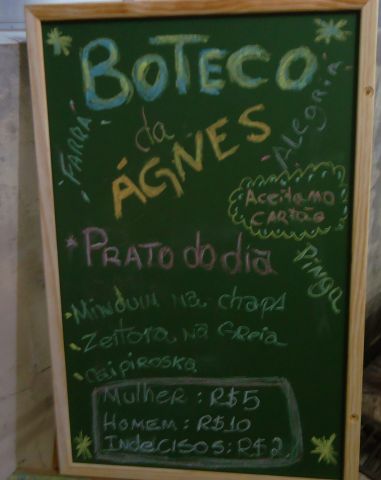 BOTECO
da
ÁGNES
FARRA
ALEGRIA
ACEITAMO
CARTÃO
PINGA
* PRATO do dia
MINDUIM NA CHAPA
ZEITONA NA GREIA
CAIPIROSKA
MULHER : R$5
HOMEM : R$10
INDECISOS: R$2